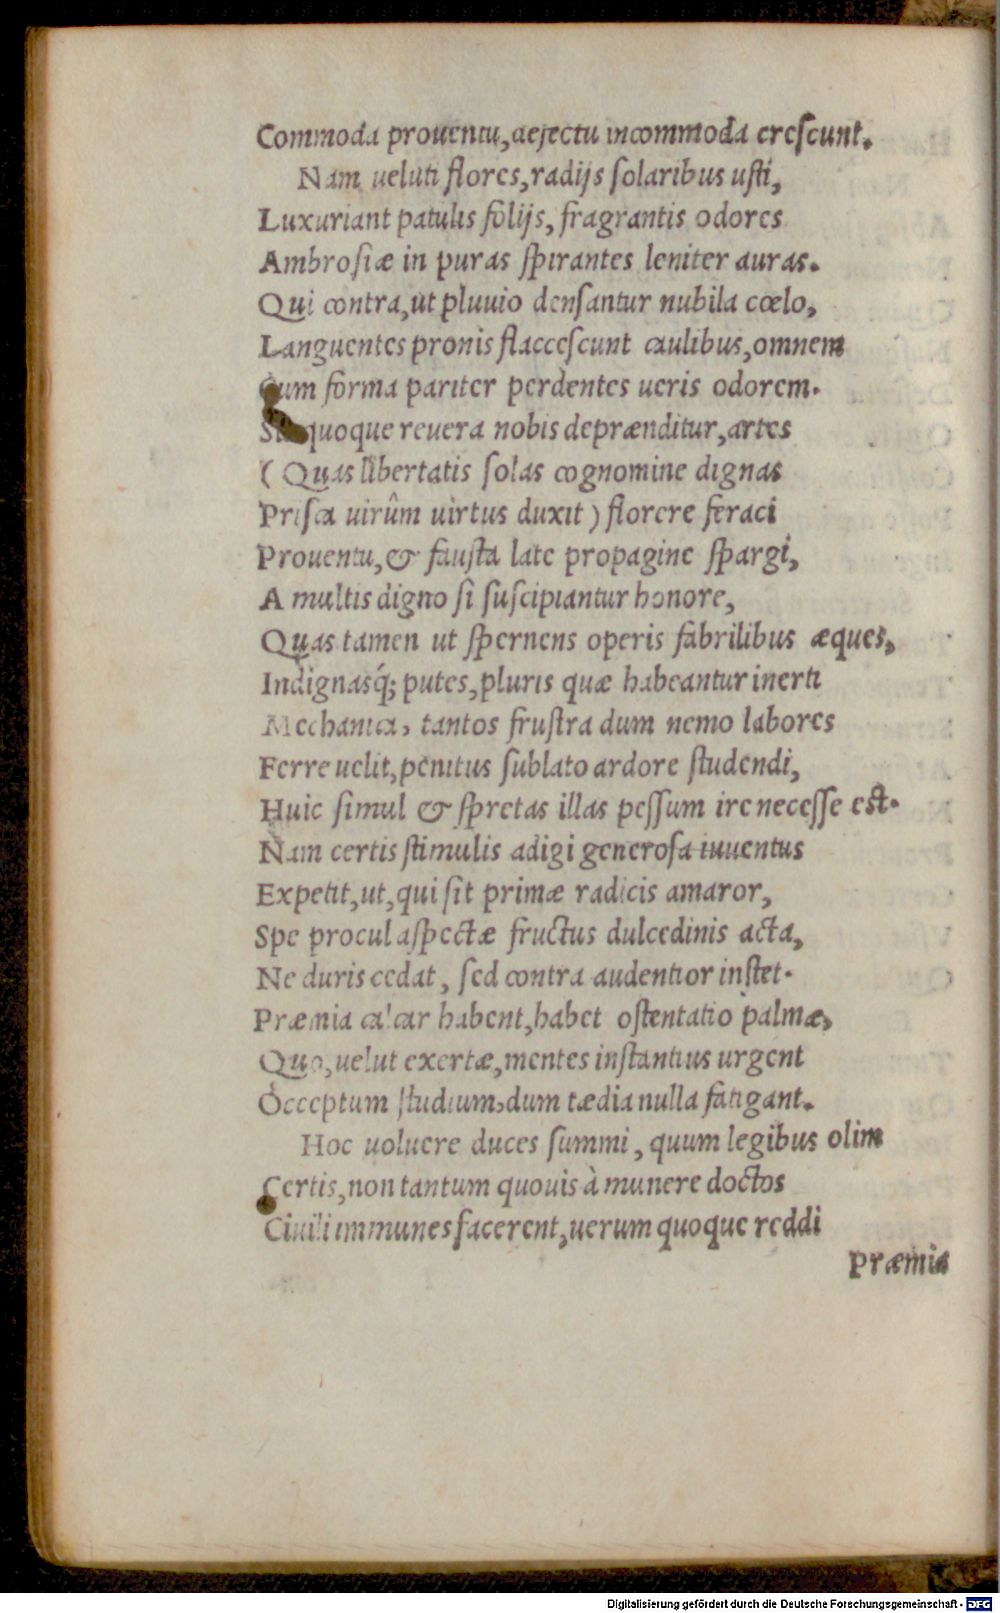 Commoda prouentu, deiectu incommoda creſcunt.
Nam ueluti flores, radijs ſolaribus uſti,
Luxuriant patulis folijs, fragrantis odores
Ambroſiæ in puras ſpirantes leniter auras.
Qui contra, ut pluuio denſantur nubila cœlo,
Languentes pronis flacceſcunt caulibus, omnem
Cum forma pariter perdentes ueris odorem.
Sic quoque reuera nobis deprænditur, artes
( Quas libertatis ſolas cognomine dignas
Priſca uirûm uirtus duxit ) florere feraci
Prouentu, & fauſta late propagine ſpargi,
A multis digno ſi ſuſcipiantur honore,
Quas tamen ut ſpernens operis fabrilibus æques,
Indignasq́; putes, pluris quæ habeantur inerti
Mechanica, tantos fruſtra dum nemo labores
Ferre uelit, penitus ſublato ardore ſtudendi,
Huic ſimul & ſpretas illas peſſum ire neceſſe eſt.
Nam certis ſtimulis adigi generoſa iuuentus
Expetit, ut, qui ſit primæ radicis amaror,
Spe procul aſpectæ fructus dulcedinis acta,
Ne duris cedat, ſed contra audentior inſtet.
Præmia calcar habent, habet oſtentatio palmæ,
Quo, uelut exertæ, mentes inſtantius urgent
Occeptum ſtudium, dum tædia nulla fatigant.
Hoc uoluere duces ſummi, quum legibus olim
Certis, non tantum quouis à munere doctos
Ciuili immunes facerent, uerum quoque reddi
Præmia
Digitalisierung gefördert durch die Deutsche Forschungsgemeinschaft - DFG